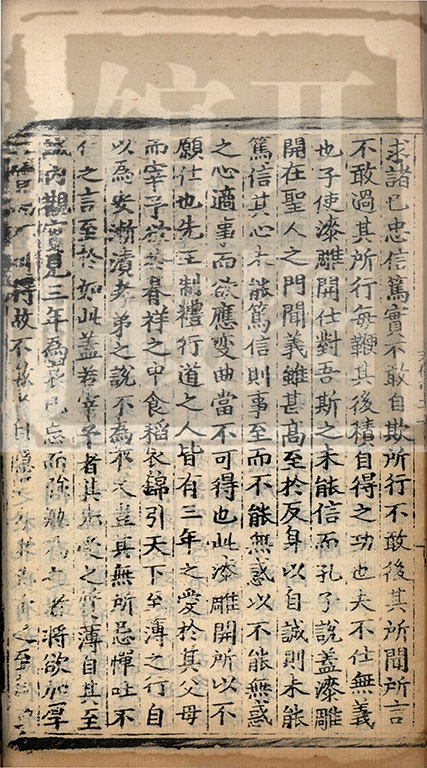 求諸已忠信篤實不敢自欺所行不敢後其所聞所言
不敢過其所行每鞭其後積自得之功也夫不仕無義
也子使漆雕開仕對吾斯之未能信而孔子說蓋漆雕
開在聖人之門聞義雖甚高至於反身以自誠則未能
篤信其心未能篤信則事至而不能無惑以不能無惑
之心適事而欲應變曲當不可得也此漆雕開所以不
願仕也先王制禮行道之人皆有三年之愛於其父母
而宰予欲朞祥之中食稻衣錦引天下至薄之行自
以為安漸漬孝弟之說不為不其無所忌憚吐不
仁之言至於如此蓋若宰予者其先受之質薄自其至
觀見三年為喪已忘而除者將欲加厚
得故不自隱之至